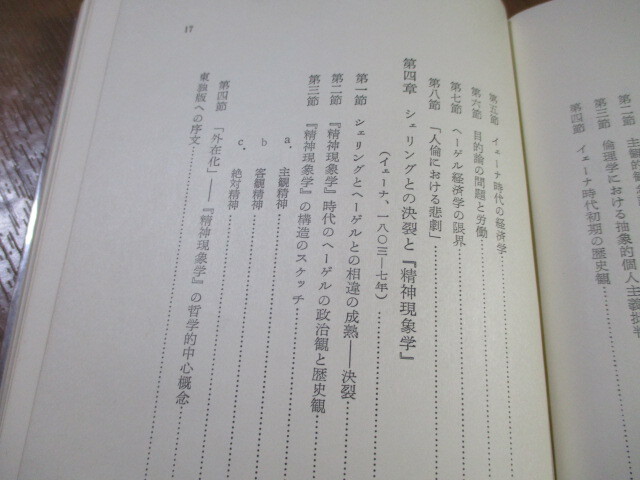 第二節 主観的
第三節 倫理学における抽象的個人主義批判
第四節 イェーナ時代初期の歴史観
第五節 イェーナ時代の経済学
第六節 目的論の問題と労働
第七節 ヘーゲル経済学の限界
第八節 「人倫における悲劇」
第四章 シェリングとの決裂と『精神現象学』
(イェーナ、一八〇三―七年)
第一節 シェリングとヘーゲルとの相違の成熟――決裂
第二節 『精神現象学』時代のヘーゲルの政治観と歴史観
第三節 『精神現象学』の構造のスケッチ
a. 主観精神
b 客観精神
c. 絶対精神
第四節 「外在化」――『精神現象学』の哲学的中心概念
東独版への序文
17